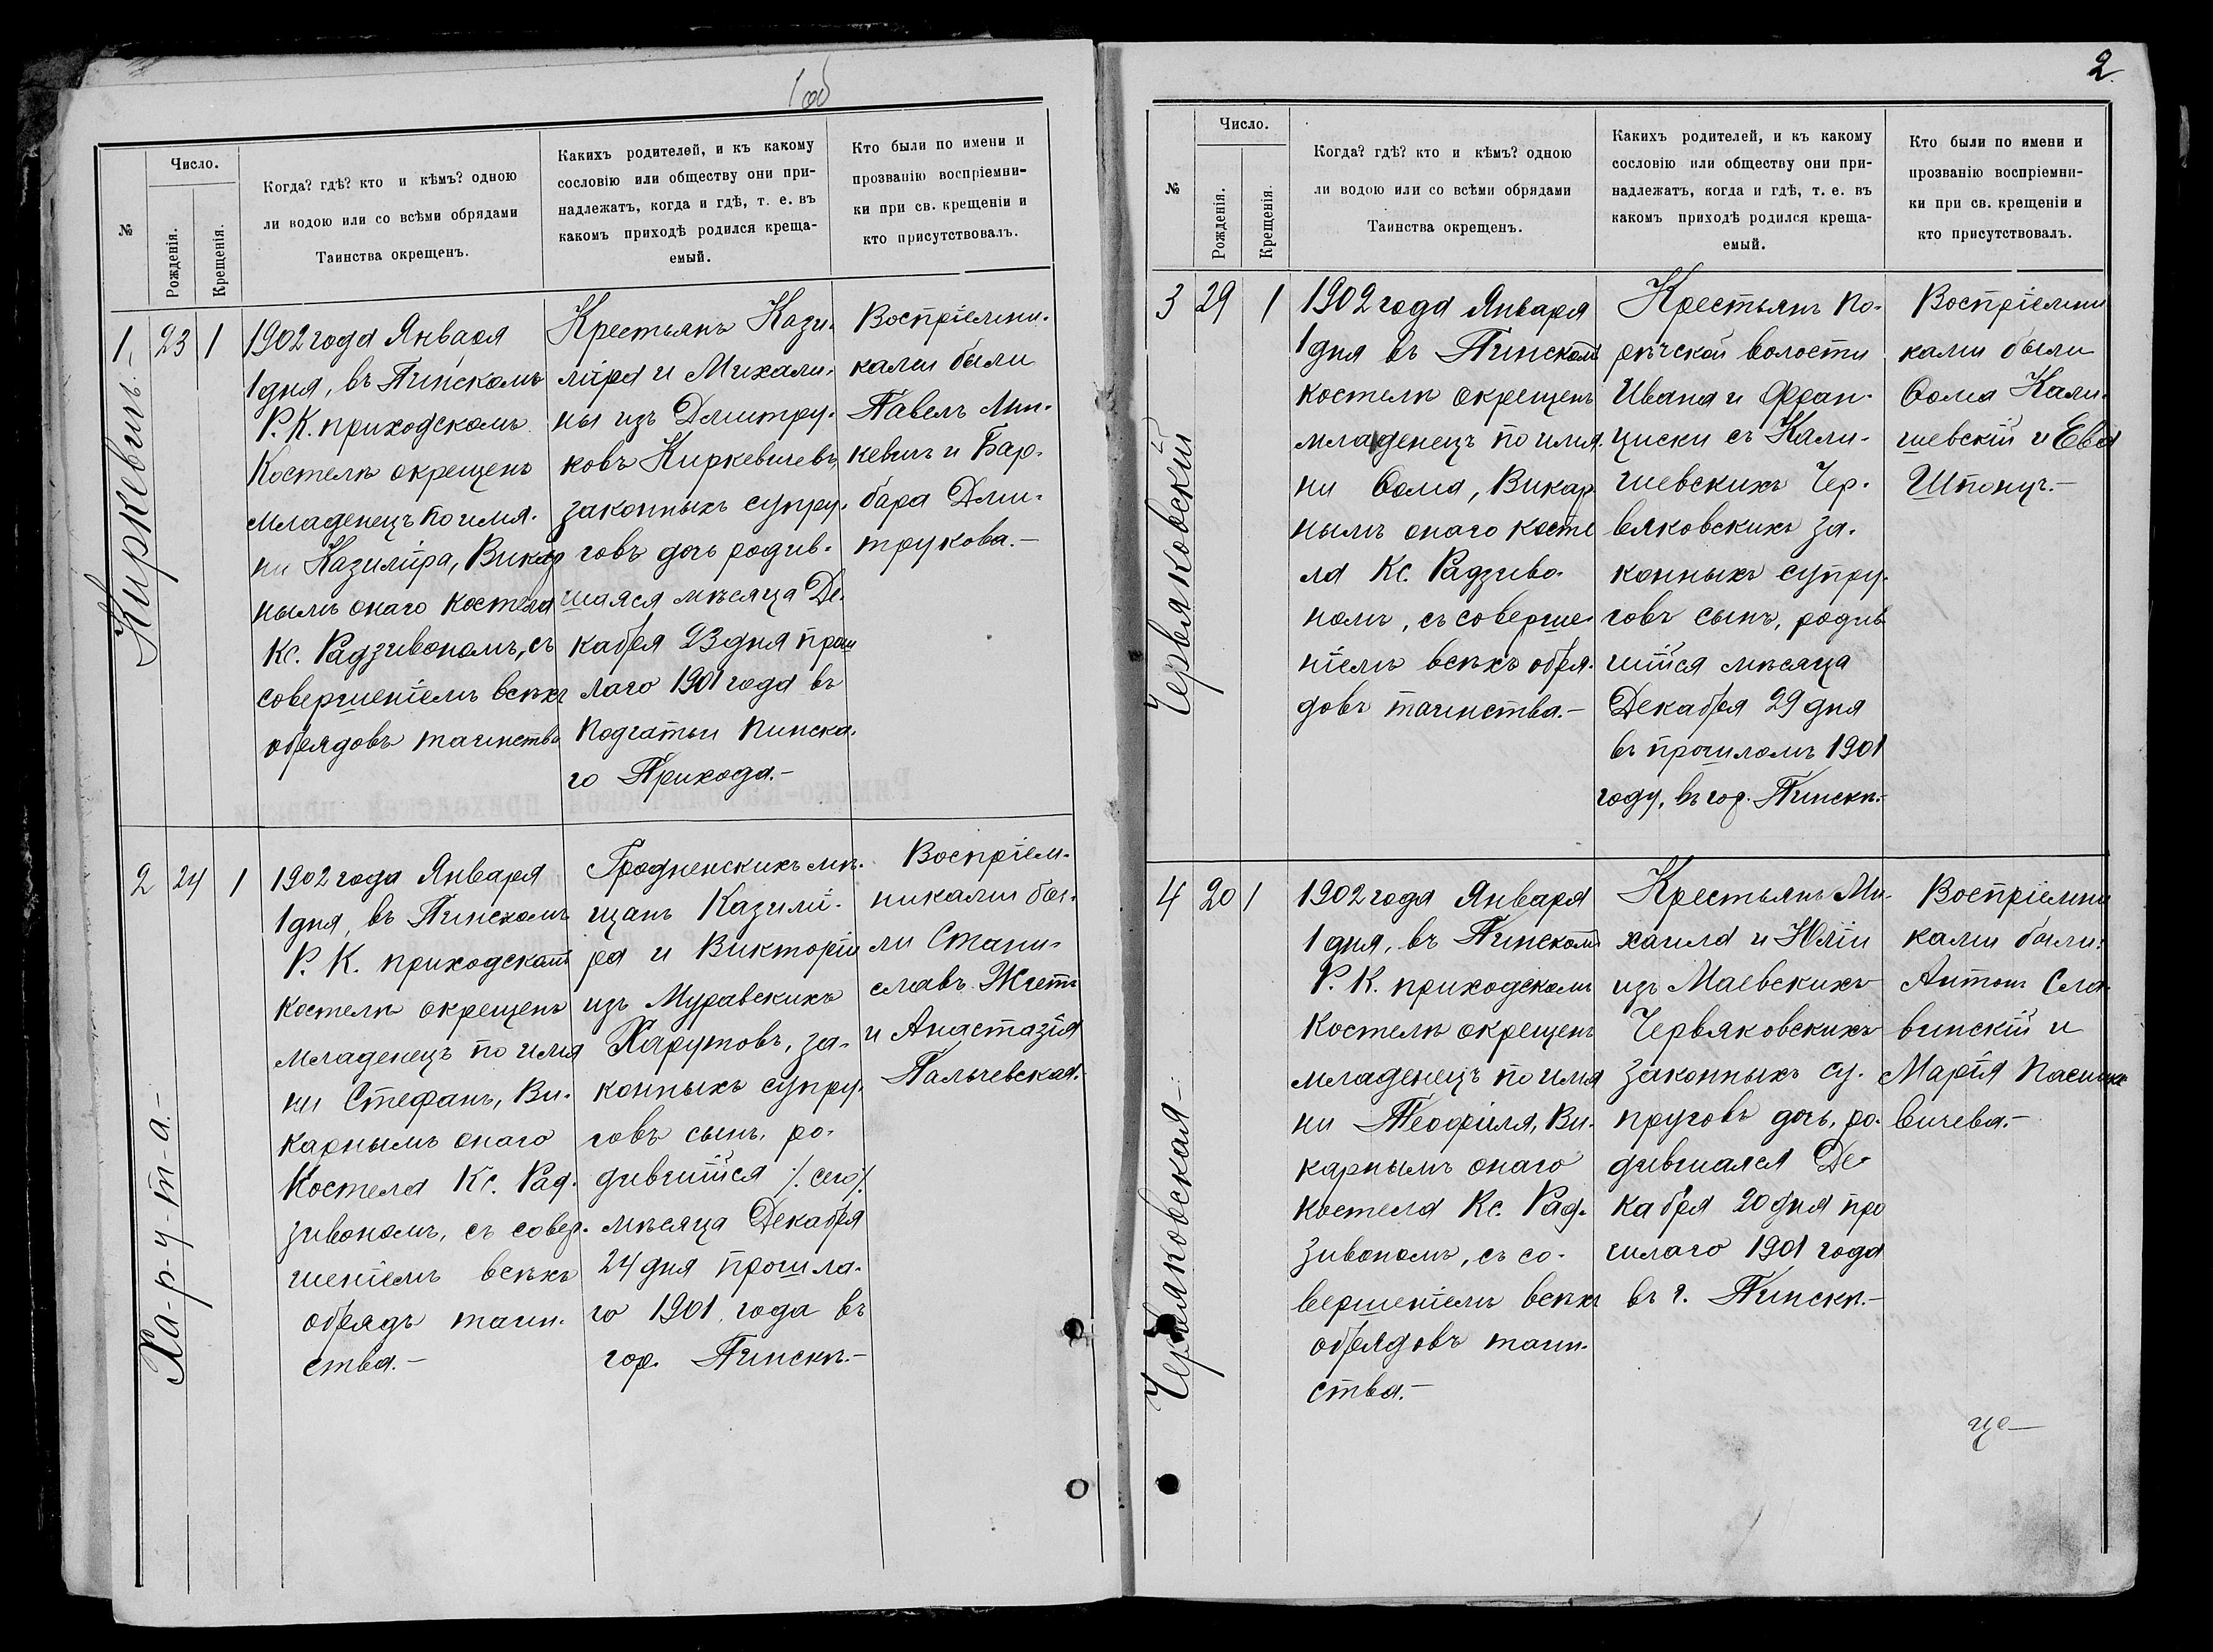 1об
№
Число.
Рожденія.
Крещенія.
Когда? гдѣ? кто и кѣмъ? одною
ли водою или со всѣми обрядами
Таинства окрещенъ.
Какихъ родителей, и къ какому
сословію или обществу они при-
надлежатъ, когда и гдѣ, т. е. въ
какомъ приходѣ родился креща-
емый.
Кто были по имени и
прозванію воспріемни-
ки при св. крещеніи и
кто присутствовалъ.
1,
23
1
Киркевичъ.
1902 года Января
1 дня, въ Пинскомъ
Р. К. приходскомъ
Костелѣ окрещенъ
младенецъ по имя-
ни Казиміра, Викар
нымъ онаго костела
Кс. Радзивономъ, съ
совершеніемъ всѣхъ
обрядовъ таинства
Крестьянъ Кази-
міра и Михали-
ны изъ Дмитру-
ковъ Киркевичевъ
законныхъ супру-
говъ дочь родив-
шаяся мѣсяца Де-
кабря 23 дня прош
лаго 1901 года въ
Подгатьи Пинска-
го Прихода.-
Воспріемни-
ками были
Павелъ Мин-
кевичъ и Бар-
бара Дми-
трукова.-
2
24
1
Ха-р-у-т-а.-
1902 года Января
1 дня, въ Пинскомъ
Р. К. приходскомъ
костелѣ окрещенъ
младенецъ по имя
ни Стефанъ, Ви-
карнымъ онаго
Костела Кс. Рад-
зивономъ, съ совер-
шеніемъ всѣхъ
обрядъ таин-
ства.-
Гродненскихъ мѣ-
щанъ Казимі-
ра и Викторіи
изъ Муравскихъ
Харутовъ, за-
конныхъ супру-
говъ сынъ, ро-
дившійся /. сего /.
мѣсяца Декабря
24 дня прошла-
го 1901 года въ
гор. Пинскѣ.-
Воспріем-
никами бы-
ли Стани-
славъ Жить
и Анастазія
Пальчевская.-
2
№
Число.
Рожденія.
Крещенія.
Когда? гдѣ? кто и кѣмъ? одною
ли водою или со всѣми обрядами
Таинства окрещенъ.
Какихъ родителей, и къ какому
сословію или обществу они при-
надлежатъ, когда и гдѣ, т. е. въ
какомъ приходѣ родился креща-
емый.
Кто были по имени и
прозванію воспріемни-
ки при св. крещеніи и
кто присутствовалъ.
3
29
1
Червяковскій
1902 года Января
1 дня въ Пинскомъ
костелѣ окрещенъ
младенецъ по имя-
ни Ѳома, Викар
нымъ онаго косте
ла Кс. Радзиво-
номъ, съ соверше-
ніемъ всѣхъ обря-
довъ таинства.-
Крестьянъ По-
рѣчской волости
Ивана и Фран-
циски съ Кали-
шевскихъ Чер-
вяковскихъ за-
конныхъ супру-
говъ сынъ, родив
шійся мѣсяца
Декабря 29 дня
въ прошломъ 1901
году, въ гор. Пинскѣ.-
Воспріемни
ками были
Ѳома Кали-
шевскій и Ева
Шпонцъ.-
4
20
1
Червяковская-
1902 года Января
1 дня, въ Пинскомъ
Р. К. приходскомъ
Костелѣ окрещенъ
младенецъ по имя
ни Теофиля, Ви-
карнымъ онаго
костела Кс. Рад-
зивономъ, съ со-
вершеніемъ всѣхъ
обрядовъ таин-
ства.-
Крестьянъ Ми-
хаила и Юліи
изъ Маевскихъ
Червяковскихъ
законныхъ су-
пруговъ дочь, ро-
дившаяся Де-
кабря 20 дня про
шлаго 1901 года
въ г. Пинскѣ.-
Воспріемни
ками были:
Антонъ Сла-
винскій и
Марія
вичева.-